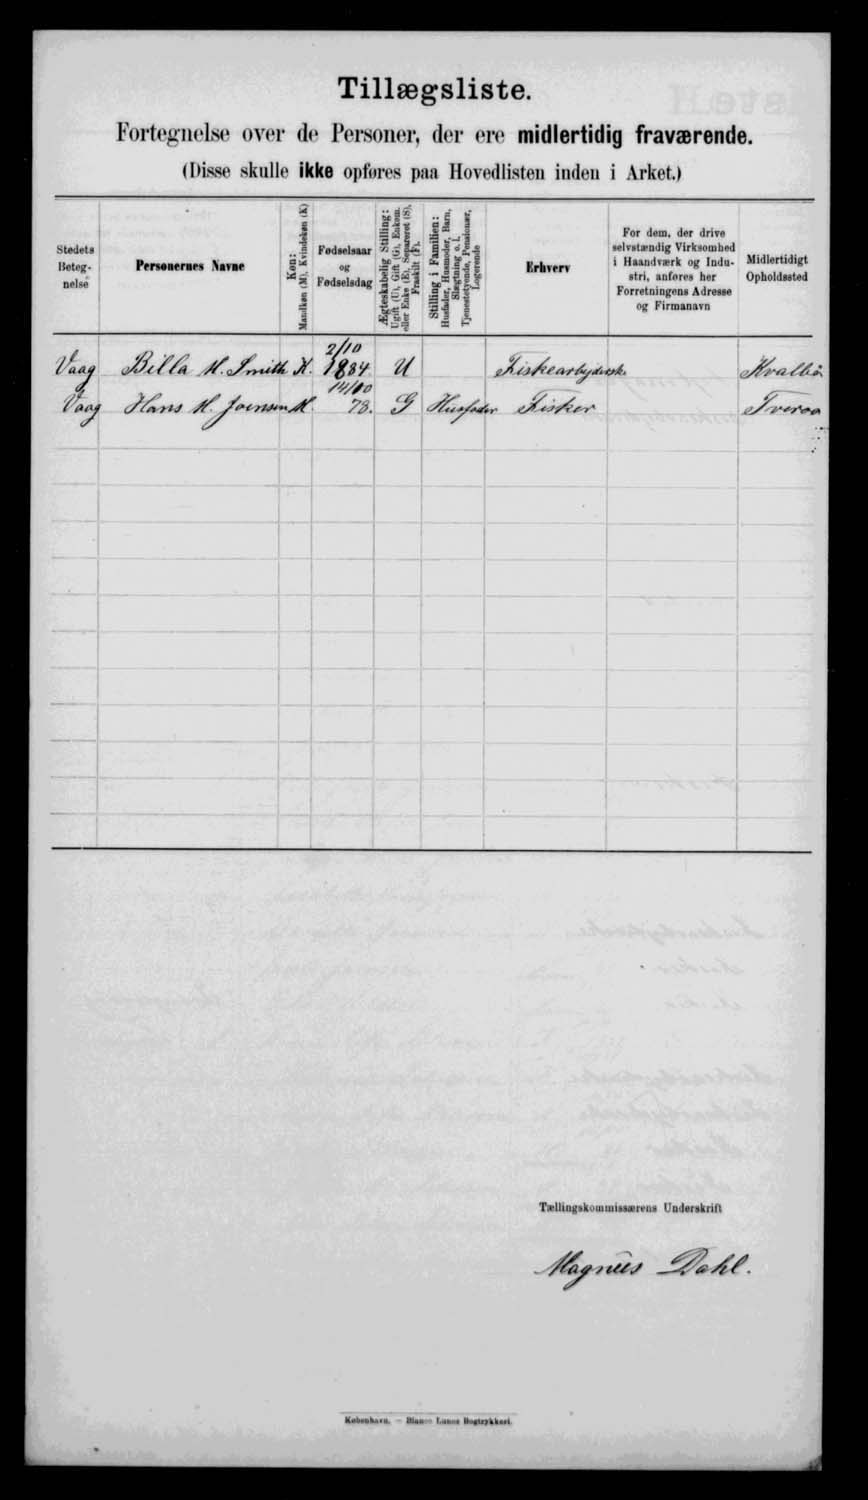 Tillægsliste.
Fortegnelse over de Personer, der ere midlertidig fraværende.
(Disse skulle ikke opføres paa Hovedlisten inden i Arket.)
Stedets
Betegnelse
Personernes Navne
Køn:
Mandkøn (M), Kvindekøn (K)
Fødselsaar
og
Fødselsdag
Ægteskabelig Stilling:
Ugift (U), Gift (G), Enkem.
eller Enke (E), Separeret (S),
Fraskilt (F).
Stilling i Familien:
Husfader, Husmoder, Barn,
Slægtning o. l.
Tjenestetyende, Pensionær,
Logerende
Erhverv
For dem, der drive
selvstændig Virksomhed
i Haandværk og Indu-
stri, anføres her
Forretningens Adresse
og Firmanavn
Midlertidigt
Opholdssted
Vaag Billa M. Smith K. 2/10 1884 U Fiskearbejderske Kvalbø
Vaag Hans M. Joensen M. 14/10 78. G Husfader Fisker Tveraa
Tællingskommissærens Underskrift
Magnus Dahl.
København. — Bianco Lunos Bogtrykkeri.